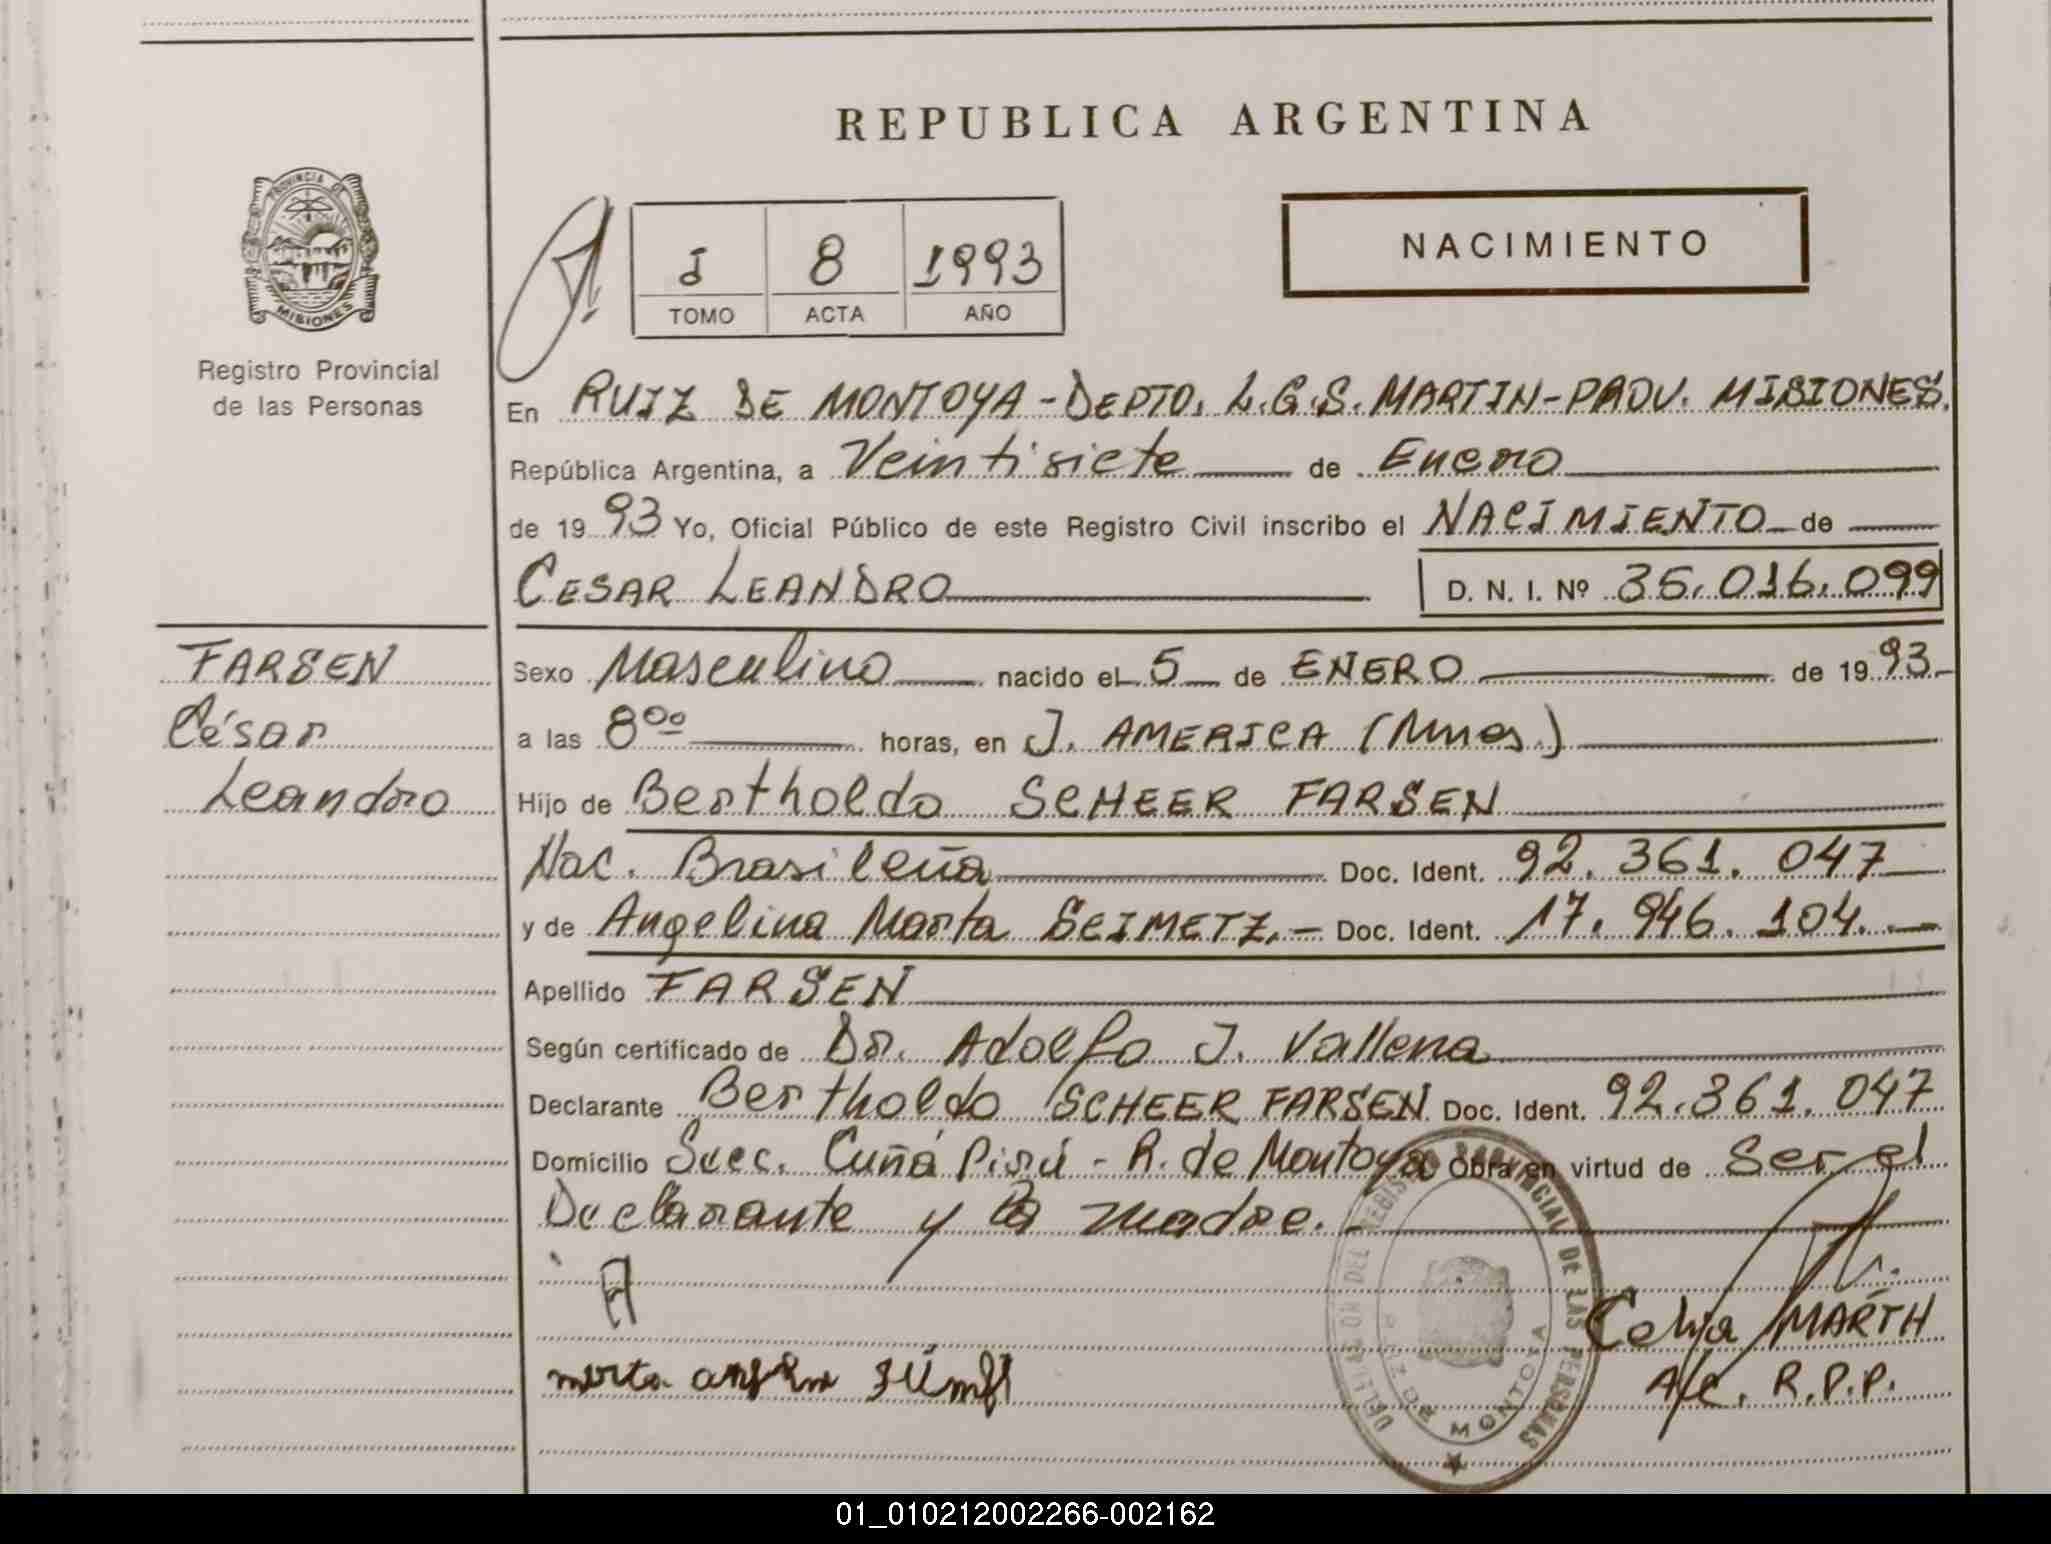 REPUBLICA ARGENTINA
PROVINCIA DE
MISIONES
Registro Provincial
de las Personas
I 8 1993
TOMO ACTA AÑO
NACIMIENTO
En RUIZ DE MONTOYA-DEPTO. L.G.S. MARTIN-PROV. MISIONES.
República Argentina, a Veintisiete de Enero
de 1993 Yo, Oficial Público de este Registro Civil inscribo el NACIMIENTO de
CESAR LEANDRO D. N. I. Nº 35.016.099
FARSEN
César
Leandro
Sexo Masculino nacido el 5 de ENERO de 1993.-
a las 8⁰⁰ horas, en J. AMERICA (Mnes.)
Hijo de Bertholdo SCHEER FARSEN
Nac. Brasileña Doc. Ident. 92.361.047
y de Angelina Marta SEIMETZ.- Doc. Ident. 17.946.104.-
Apellido FARSEN
Según certificado de Dr. Adolfo J. Vallena
Declarante Bertholdo SCHEER FARSEN Doc. Ident. 92.361.047
Domicilio Secc. Cuñá Pirú - R. de Montoya Obra en virtud de Ser el
Declarante y la madre.-
DELEGACION DEL REGISTRO PROVINCIAL DE LAS PERSONAS
RUIZ DE MONTOYA
MARTH
A/C. R.P.P.
01_010212002266-002162